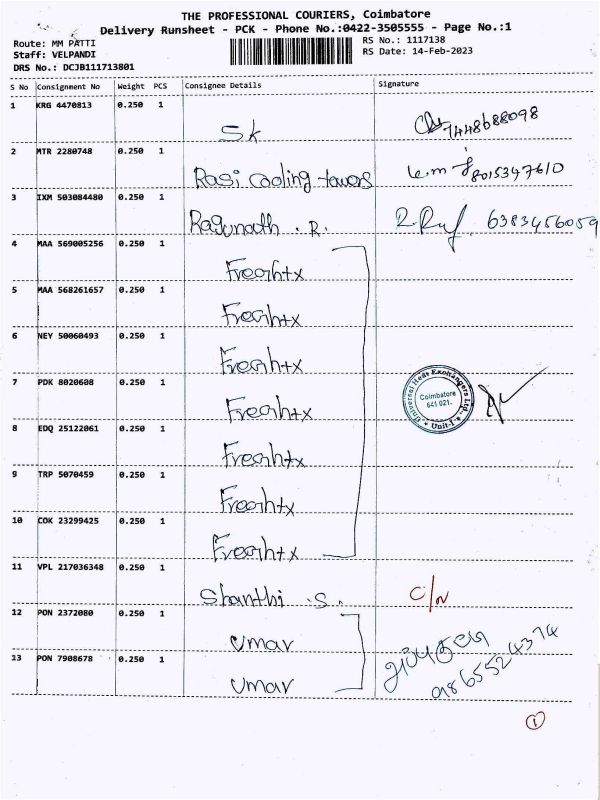 THE PROFESSIONAL COURIERS, Coimbatore
Delivery Runsheet - PCK - Phone No.:0422-3505555 - Page No.:1
Route: MM PATTI
Staff: VELPANDI
DRS No.: DCJB111713801
RS No.: 1117138
RS Date: 14-Feb-2023
S No Consignment No Weight PCS Consignee Details Signature
1 KRG 4470813 0.250 1 SK 7448688098
2 MTR 2280748 0.250 1 Rasi cooling towers 8015347610
3 IXM 503084480 0.250 1 Ragunath . R. 6383456059
4 MAA 569005256 0.250 1
5 MAA 568261657 0.250 1
6 NEY 50060493 0.250 1
7 PDK 8020608 0.250 1
Universal Heat Exchangers Ltd. Coimbatore 641 021. Unit-I
8 EDQ 25122061 0.250 1
9 TRP 5070459 0.250 1
10 COK 23299425 0.250 1
11 VPL 217036348 0.250 1 Shanthi . S. C/N
12 PON 2372080 0.250 1 Umar
13 PON 7908678 0.250 1 Umar 9865524374
1